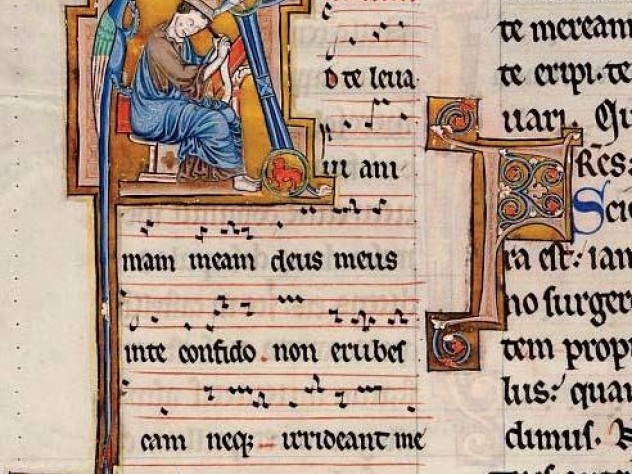 D te leua
ui ani
mam meam deus meus
inte confido . non erubes
cam neqȝ irrideant me
te meream
te eripi. te
uari. Qu
FRĒS:
Scie
ra est: iam
no surger
tem propi
lus: quan
dimus. N